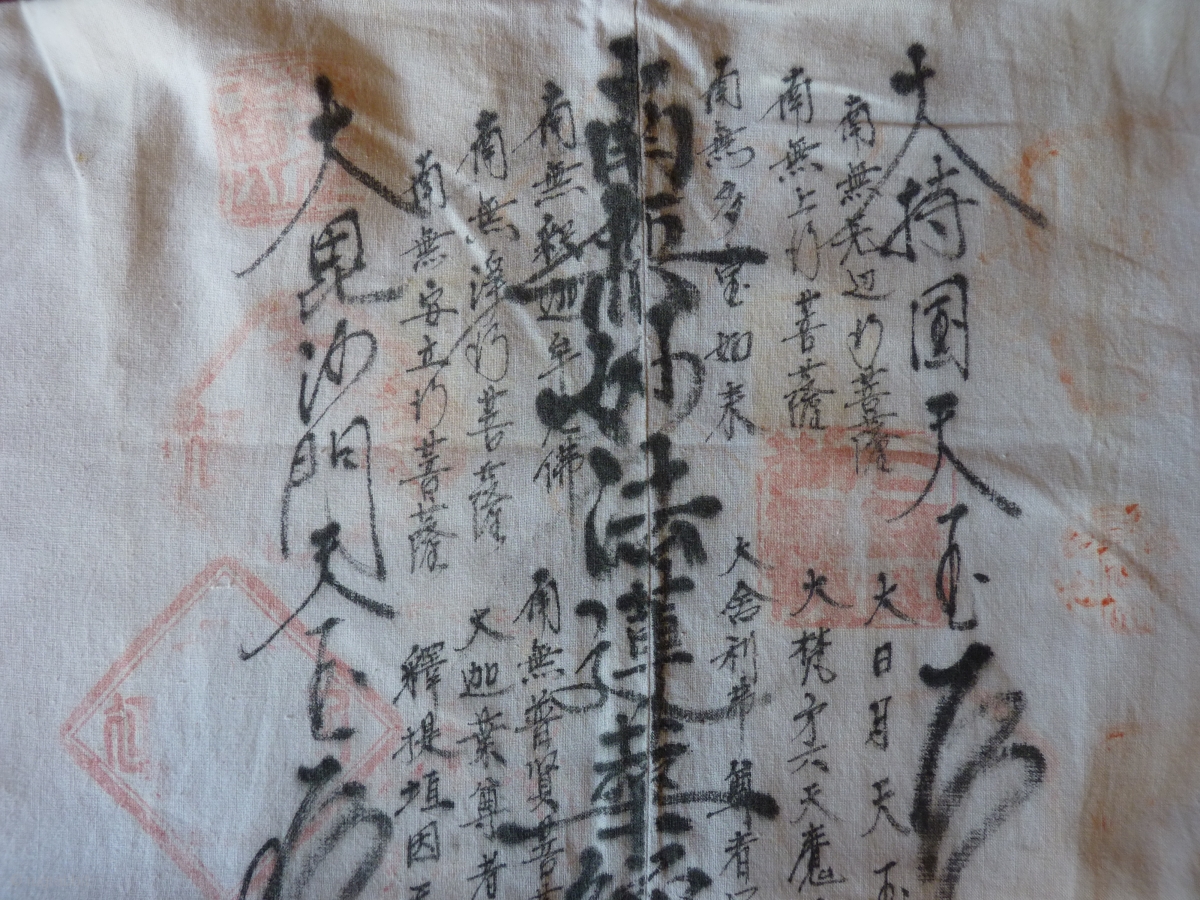 大持國天王
南無无辺行菩薩
南無上行菩薩
南無多宝如来
南無妙法蓮華經
南無釋迦牟尼佛
南無浄行菩薩
南無安立行菩薩
大毘沙門天王
大日月天王
大梵第六天魔
大舍利弗尊者
南無普賢菩
大迦葉尊者
釋提垣因